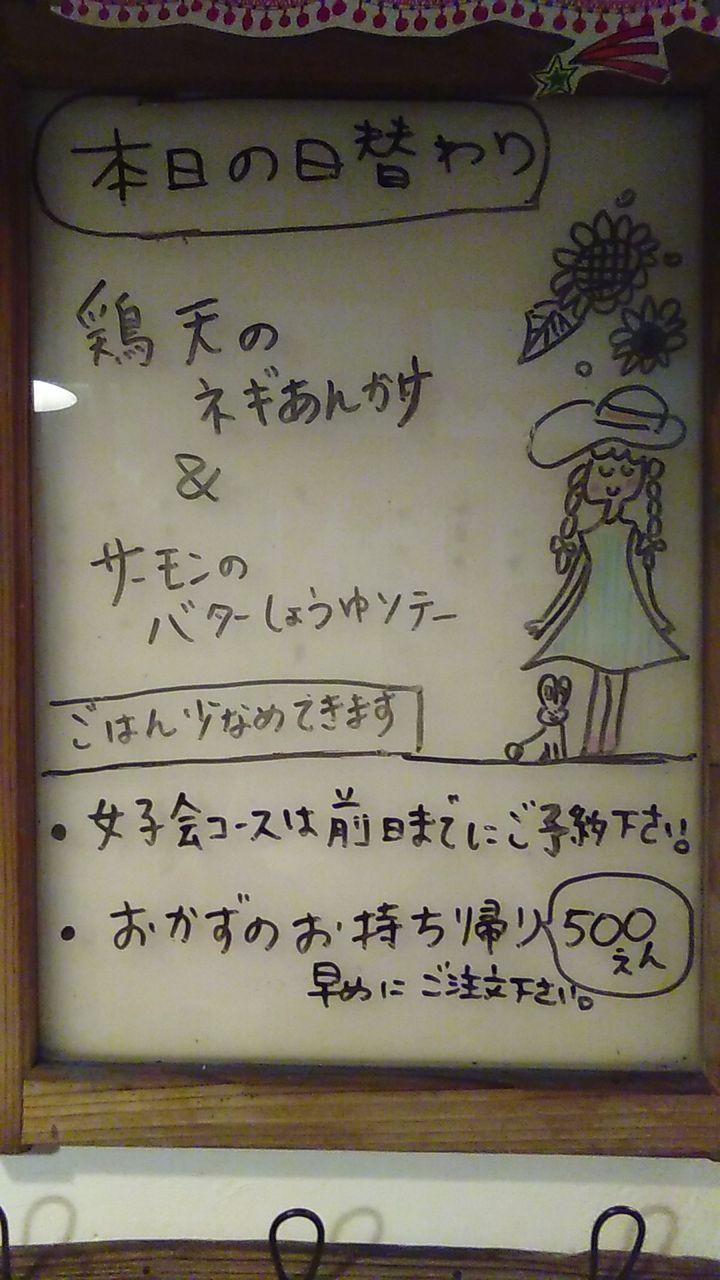 本日の日替わり
鶏天の
ネギあんかけ
&
サーモンの
バターしょうゆソテー
ごはん少なめできます
• 女子会コースは前日までにご予約下さい。
• おかずのお持ち帰り 500
えん
早めにご注文下さい。